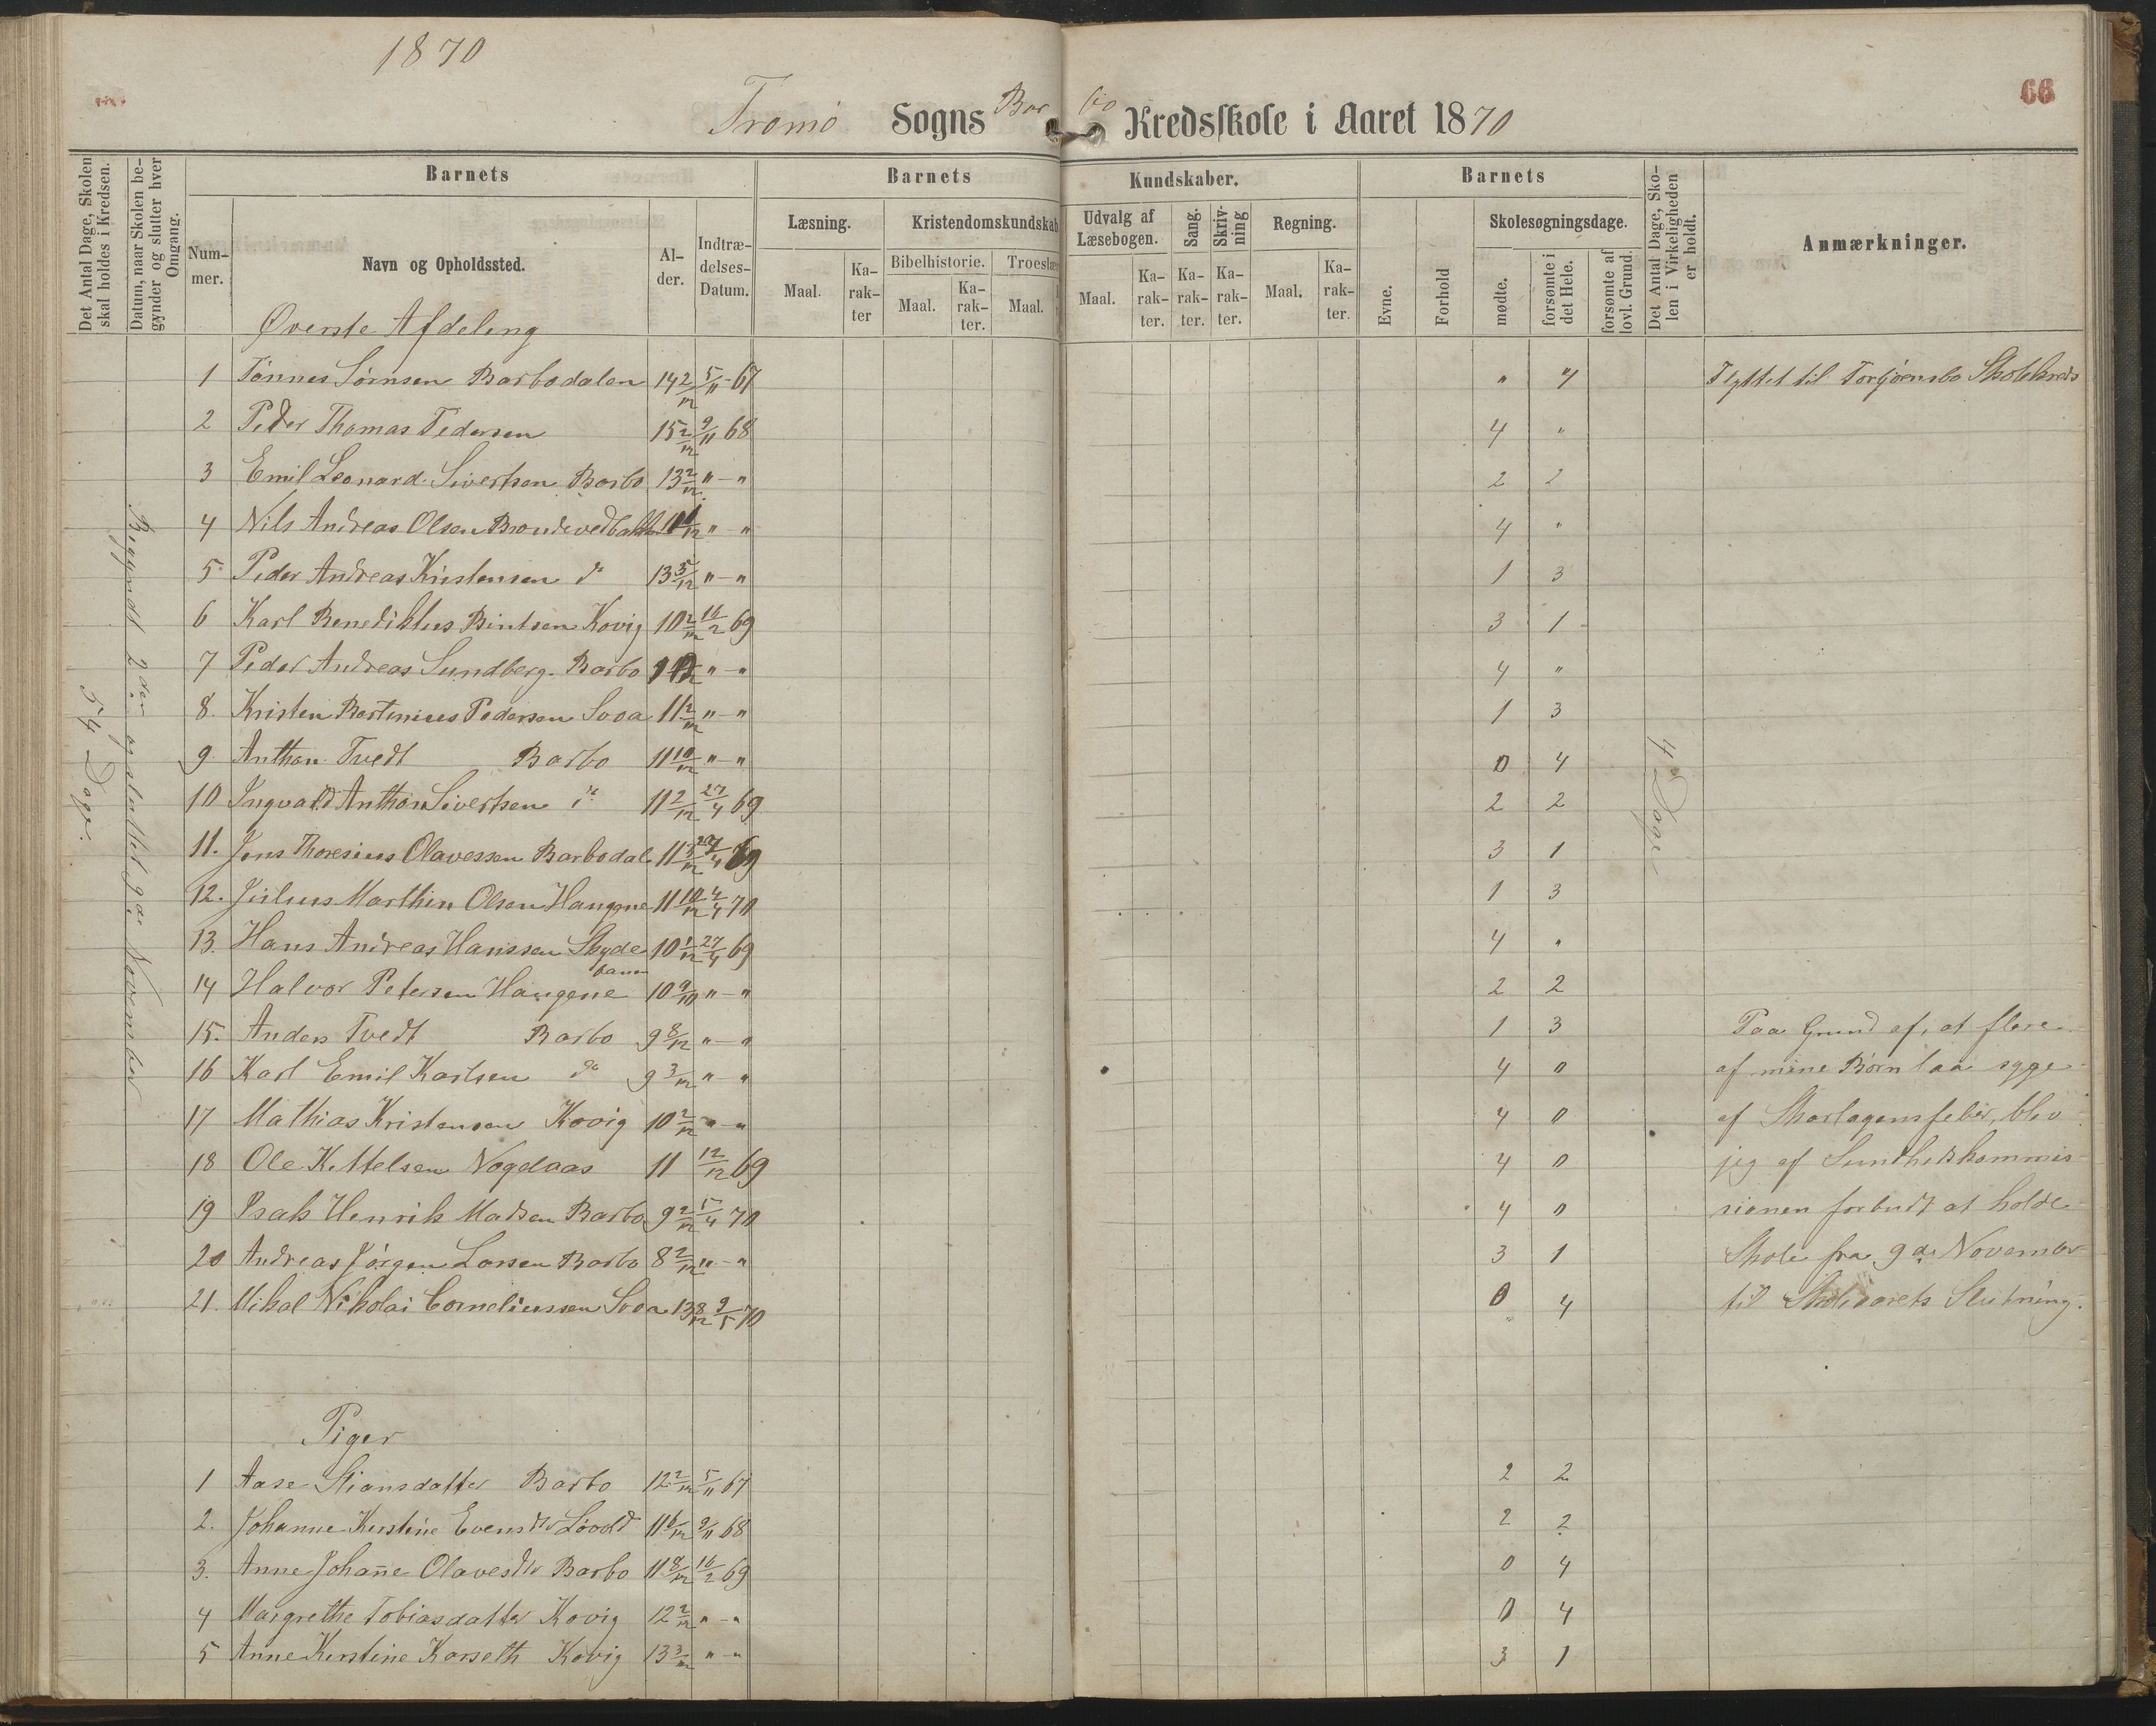 1870
66
Tromö Sogns Barbo Kredsskole i Aaret 1870
Det Antal Dage, Skolen skal holdes i Kredsen.
Datum, naar Skolen begynder og slutter hver Omgang.
Barnets
Barnets
Kundskaber.
Barnets
Det Antal Dage, Skolen i Virkeligheden er holdt.
Anmærkninger.
Nummer.
Navn og Opholdssted.
Alder.
Indtrædelses-Datum.
Læsning.
Kristendomskundskab
Udvalg af Læsebogen.
Sang.
Skrivning
Regning.
Evne.
Forhold
Skolesøgningsdage.
Maal.
Karakter
Bibelhistorie.
Troeslæ
Maal.
Karakter.
Maal.
Maal.
Karakter.
Karakter.
Karakter.
Maal.
Karakter.
mødte.
forsømte i det Hele.
forsømte af lovl. Grund.
Øverste Afdeling
54 Dage.
Begyndt 2den og sluttet 9de November
4 Dage
1 Tönnes Sörnsen Barbodalen 14 2/12 5/11-67 " " Flyttet til Torbjörnsbo Skolekreds
2 Peder Thomas Pedersen 15 2/12 9/11 68 4 "
3 Emil Leonard Sivertsen Barbo 13 2/12 "-" 2 2
4 Nils Andreas Olsen "-" 4 "
5 Peder Andreas Kristensen do 13 5/12 "-" 1 3
6 Karl Benediktus Bentsen Kovig 10 2/12 16/2 69 3 1
7 Peder Andreas Sundberg. Barbo "-" 4 "
8. Kristen Bertinius Pedersen Sooa 11 2/12 "-" 1 3
9. Anthon Tvedt Barbo 11 10/12 "-" 0 4
10 Ingvald Anthon Sivertsen do 11 2/12 27/4 69 2 2
11. Jens Thoresius Olavessen Barbodal 69 3 1
12. Julius Marthin Olsen Haugene 11 10/12 4/4 70 1 3
13. Hans Andreas Hanssen Skyde banen 10 1/12 27/4 69 4 "
14 Halvor Petersen Haugene 10 9/10 "-" 2 2
15. Anders Tvedt Barbo 9 8/12 "-" 1 3 Paa Grund af, at flere
16 Karl Emil Karlsen do 9 3/12 "-" 4 0 af mine Börn laa syge
17 Mathias Kristensen Kovig 10 2/12 "-" 4 0 af Skarlagensfeber, blev
18 Ole Kittelsen Nogelaas 11 12/12 69 4 0 jeg af Sundhedskommis
19 Isak Henrik Madsen Barbo 9 2/12 5/4 70 4 0 sionen forbudt at holde
20 Andreas Jörgen Larsen Barbo 8 2/12 "-" 3 1 Skole fra 9de November
21. Mikal Nikolai Corneliussen Sooa 13 8/12 9/5 70 0 4 til Skoleaarets Slutning.
Piger
1 Aase Stiansdatter Barbo 12 2/12 5/11 67 2 2
2. Johanne Kirstine Evensdtr Lövold 11 6/12 9/11 68 2 2
3. Anne Johan̄e Olavesdtr Barbo 11 8/12 16/2 69 0 4
4 Margrethe Tobiasdatter Kovig 12 2/12 "-" 0 4
5 Anne Kirstine Korseth Kovig 13 3/12 "-" 3 1